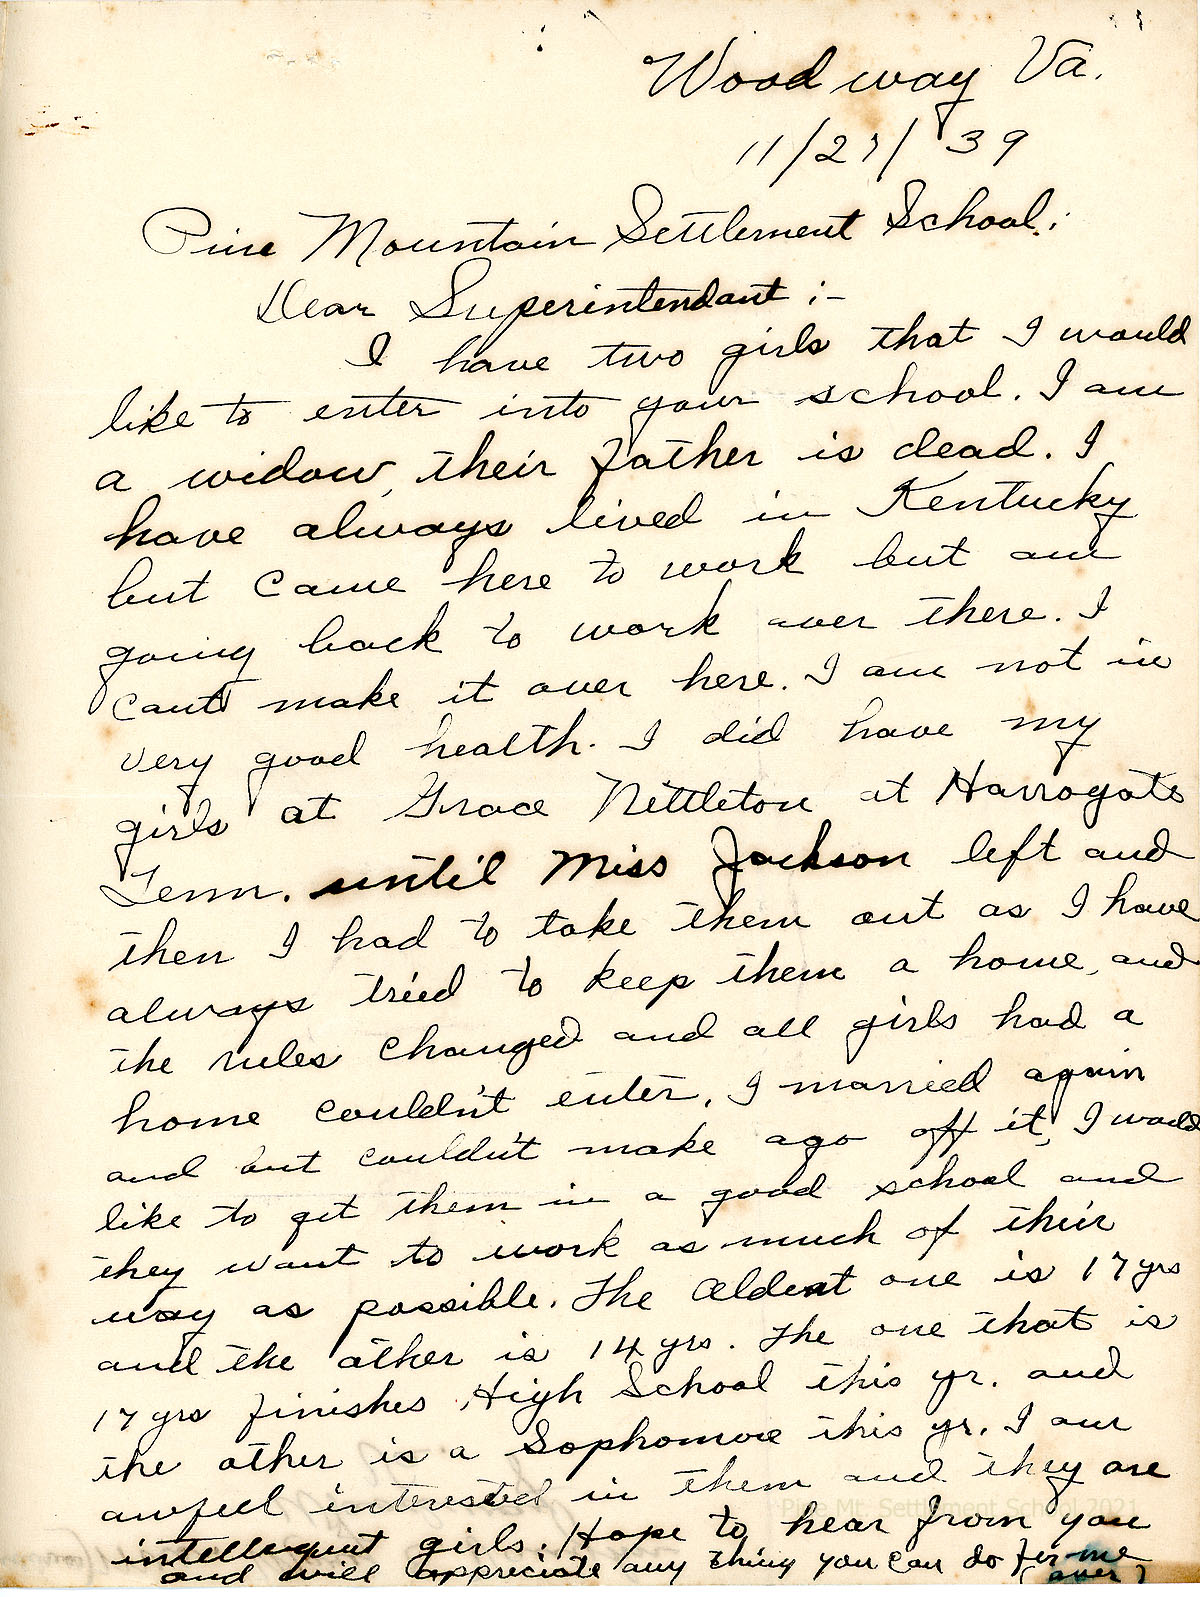 Woodway Va.
11/27/39
Pine Mountain Settlement School;
Dear Superintendant :-
I have two girls that I would
like to enter into your school. I am
a widow, their father is dead. I
have always lived in Kentucky
but came here to work but am
going back to work over there. I
cant make it over here. I am not in
very good health. I did have my
girls at Grace Nettleton at Harrogate
Tenn. until Miss Jackson left and
then I had to take them out as I have
always tried to keep them a home, and
the rules changed and all girls had a
home couldn't enter. I married again
and but couldn't make ago off it, I would
like to get them in a good school and
they want to work as much of their
way as possible. The oldest one is 17 yrs
and the other is 14 yrs. The one that is
17 yrs finishes High School this yr. and
the other is a Sophomore this yr. I am
awful interested in them and they are
intellequnt girls. Hope to hear from you
and will appreciate any thing you can do for me
(over)
Pine Mt. Settlement School 2021